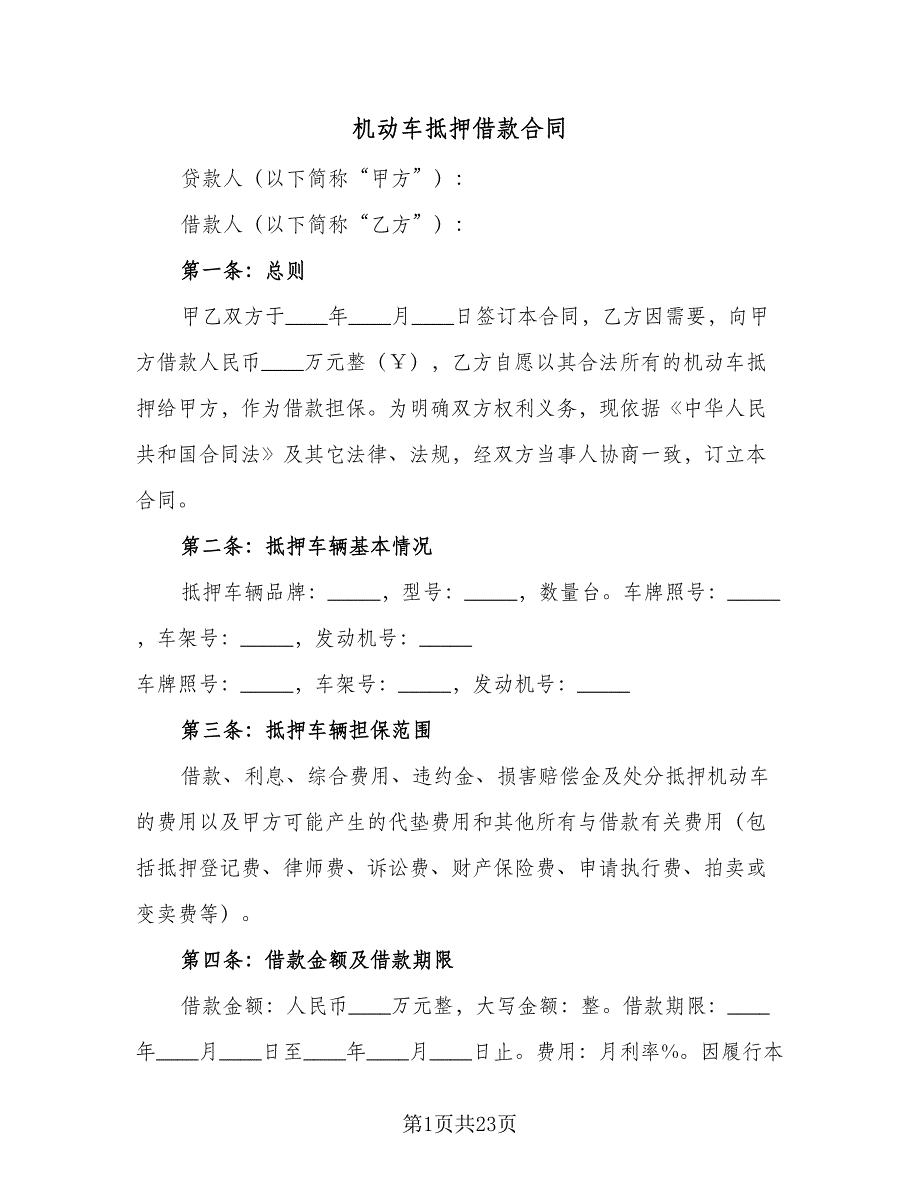 机动车抵押借款合同
贷款人（以下简称“甲方”）：
借款人（以下简称“乙方”）：
第一条：总则
甲乙双方于____年____月____日签订本合同，乙方因需要，向甲
方借款人民币____万元整（￥），乙方自愿以其合法所有的机动车抵
押给甲方，作为借款担保。为明确双方权利义务，现依据《中华人民
共和国合同法》及其它法律、法规，经双方当事人协商一致，订立本
合同。
第二条：抵押车辆基本情况
抵押车辆品牌：_____，型号：_____，数量台。车牌照号：_____
，车架号：_____，发动机号：_____
车牌照号：_____，车架号：_____，发动机号：_____
第三条：抵押车辆担保范围
借款、利息、综合费用、违约金、损害赔偿金及处分抵押机动车
的费用以及甲方可能产生的代垫费用和其他所有与借款有关费用（包
括抵押登记费、律师费、诉讼费、财产保险费、申请执行费、拍卖或
变卖费等）。
第四条：借款金额及借款期限
借款金额：人民币____万元整，大写金额：整。借款期限：____
年____月____日至____年____月____日止。费用：月利率%。因履行本
第1页共23页